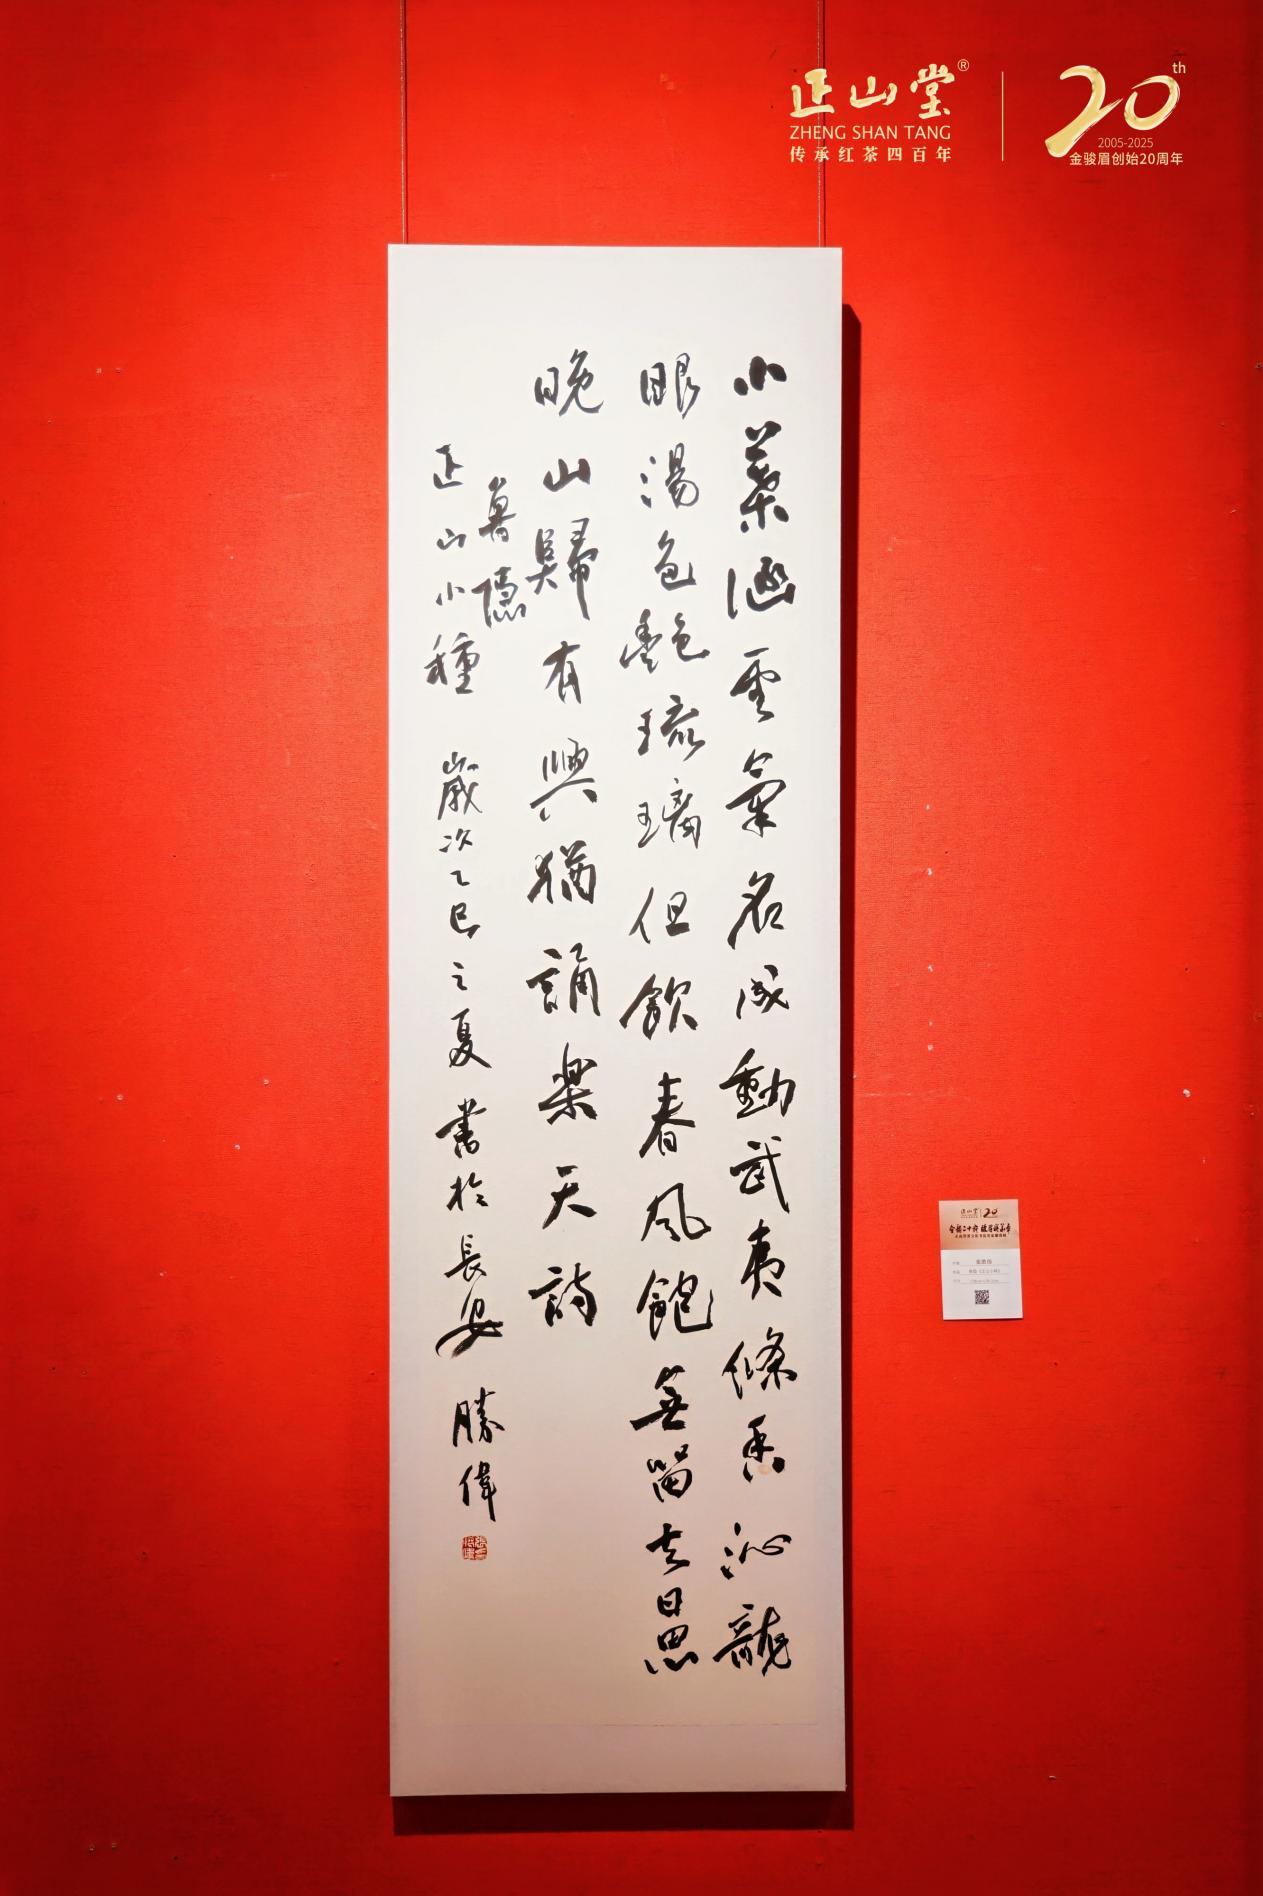 正山堂®
ZHENG SHAN TANG
传承红茶四百年
20th
2005-2025
金骏眉创始20周年
小葉涵雲氣名成動武夷條香沁龍
眼湯色艷琉璃但飲春風飽無留去日思
晚山歸有興猶誦樂天詩
魯隱
正山小種 歲次乙巳之夏書於長安 勝偉
正山堂 20